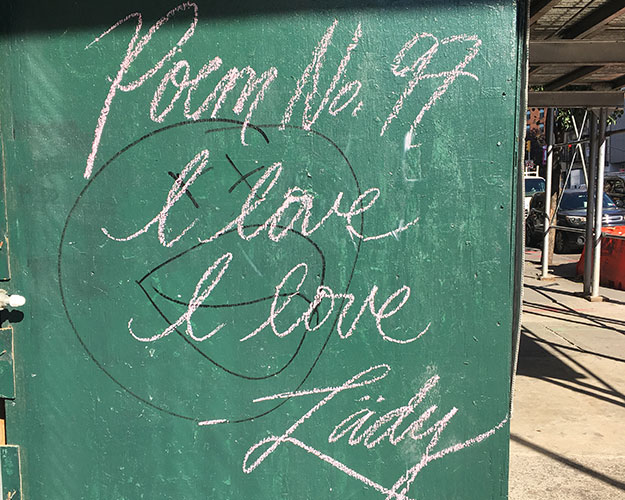 Poem No. 97
I love
I love
- Lädy